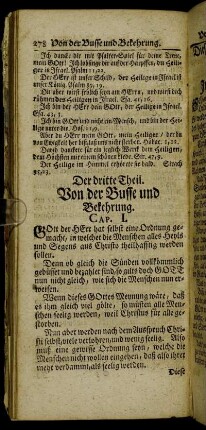 278 Von der Busse und Bekehrung.
Ich danke dir mit Psalter-Spiel für deine Treue,
mein GOtt! Ich lobsinge dir auf der Harpffen, du Heili-
ger in Israel. Psalm 71, 22.
Der HErr ist unser Schild, der Heilige in Israel ist
unser König. Psalm 89, 19.
Du aber wirst frölich seyn am HErrn, und wirst dich
rühmen des Heiligen in Israel. Esa. 41, 16.
Ich bin der HErr dein GOtt, der Heilige in Israel.
Esa. 43, 3.
Ich bin GOtt und nicht ein Mensch, und bin der Hei-
lige unter dir. Hos. 11, 9.
Aber du HErr mein GOtt, mein Heiliger, der du
von Ewigkeit her bist, laß uns nicht sterben. Habac. 1, 12.
für ein jeglich Werck dem Heiligen,
dem Höchsten mit einem schönen Liede. Sir. 47, 9.
Der Heilige im Himmel
Der dritte Theil.
Von der Busse und
Bekehrung.
CAP. I.
GOtt der HErr hat selbst eine Ordnung ge-
macht, in welcher die Menschen alles Heyls
und Segens aus Christo theilhafftig werden
sollen.
Denn ob gleich die Sünden vollkömmlich
gebüsset und bezahlet sind, so gilts doch GOTT
nun nicht gleich, wie sich die Menschen nun er-
weisen.
Wenn dieses GOttes Meynung wäre, daß
es ihm gleich viel gölte, so müsten alle Menschen
seelig werden, weil Christus für alle ge-
storben.
Nun aber werden nach dem Ausspruch Chri-
sti selbst, viele verlohren, und wenig seelig. Also
muß eine gewisse Ordnung seyn, welche die
Menschen nicht wollen eingehen, daß also ihrer
mehr verdammt, als seelig werden.
Diese